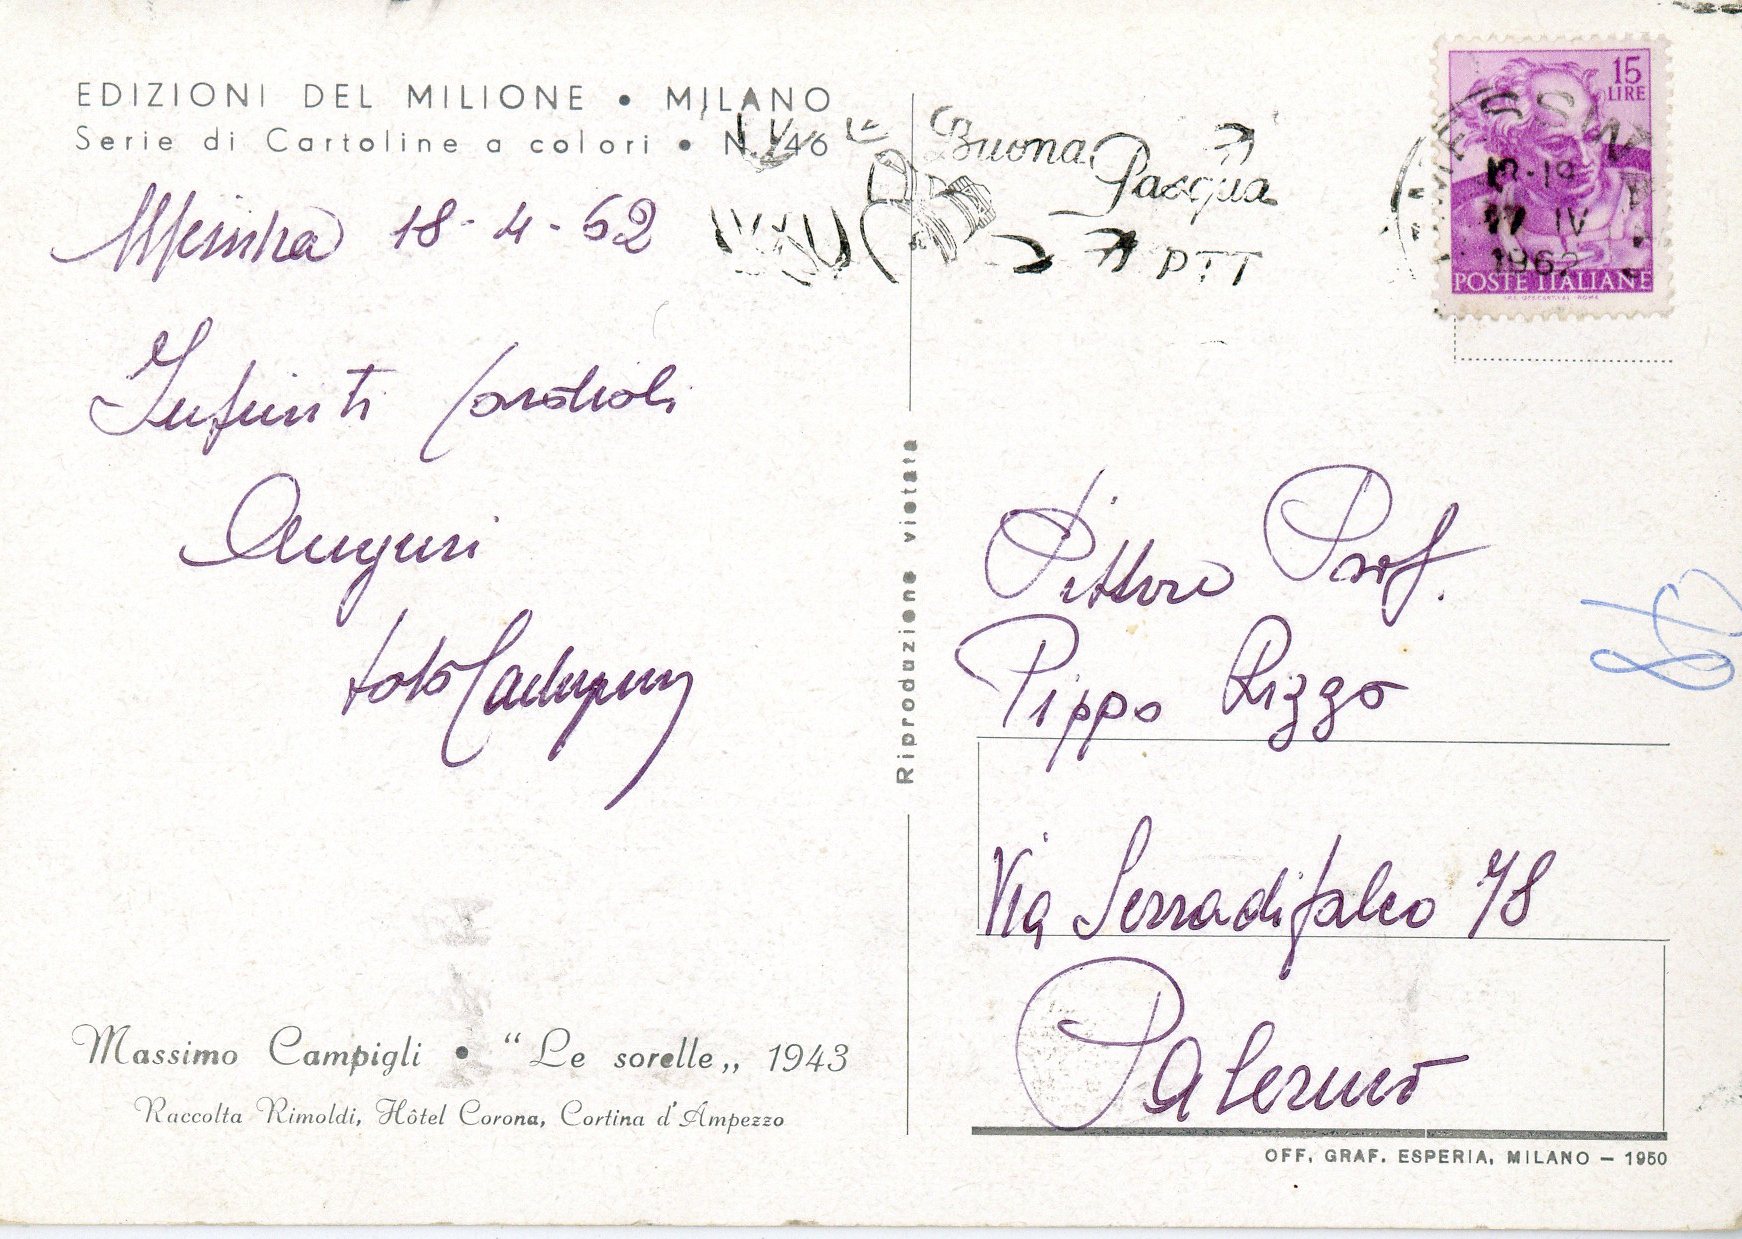 EDIZIONI DEL MILIONE • MILANO
Serie di Cartoline a colori • N. 46
18-4-62
Infiniti Cordiali
Auguri
Totò
Massimo Campigli • "Le sorelle„ 1943
Raccolta Rimoldi, Hôtel Corona, Cortina d'Ampezzo
Riproduzione vietata
Buona
Pasqua
PTT
15
LIRE
IV
1962
POSTE ITALIANE
Pittore Prof.
Pippo Rizzo
Via Serradifalco 78
Palermo
OFF. GRAF. ESPERIA, MILANO — 1950